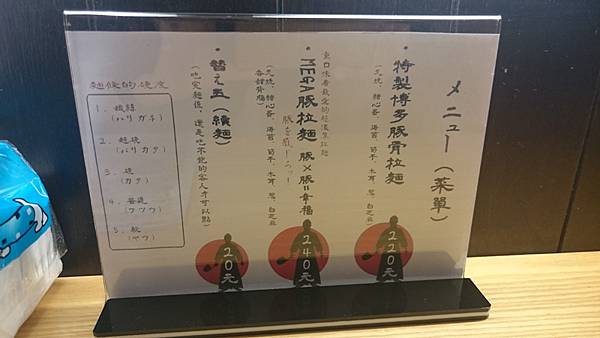 メニュー(菜單)
• 特製博多豚骨拉麵
(叉燒、糖心蛋、海苔、筍干、木耳、蔥、白芝麻)
220元
重口味者最愛的超濃度拉麵
• MEGA豚拉麵 豚X豚=幸福
(叉燒、糖心蛋、海苔、筍干、木耳、蔥、白芝麻
240元
• 替え玉(續麵)
(吃完麵後,還是吃不飽的客人才可以點)
20元
麵條的硬度
(バリガチ)
2. 超硬
(バリカタ)
3. 硬
(カタ)
4. 普通
(フツウ)
5. 軟
(ヤワ)